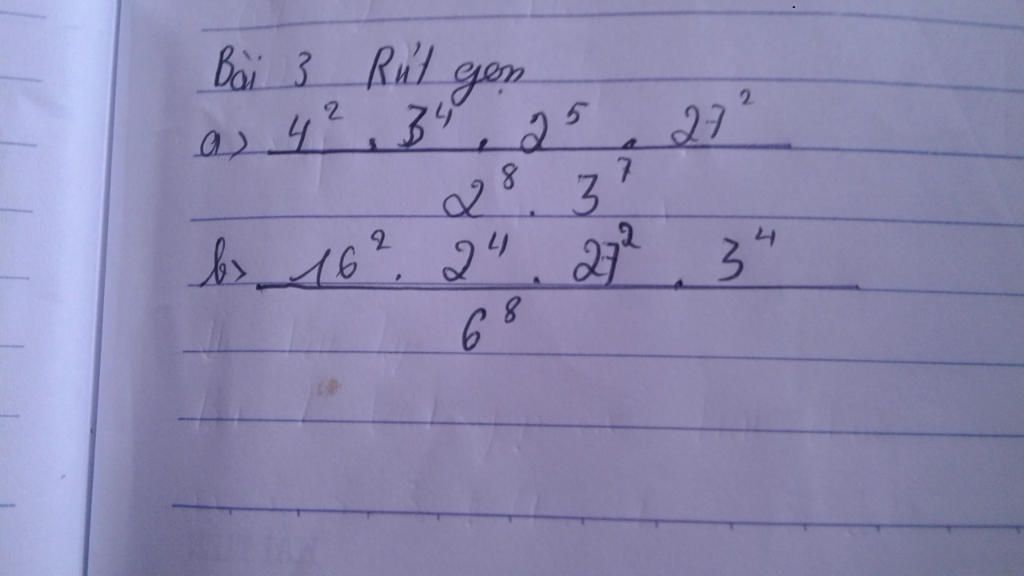 Bài 3 Rút gọn
a) 4² . 3⁴ . 2⁵ . 27²
2⁸ . 3⁷
b) 16² . 2⁴ . 27² . 3⁴
6⁸